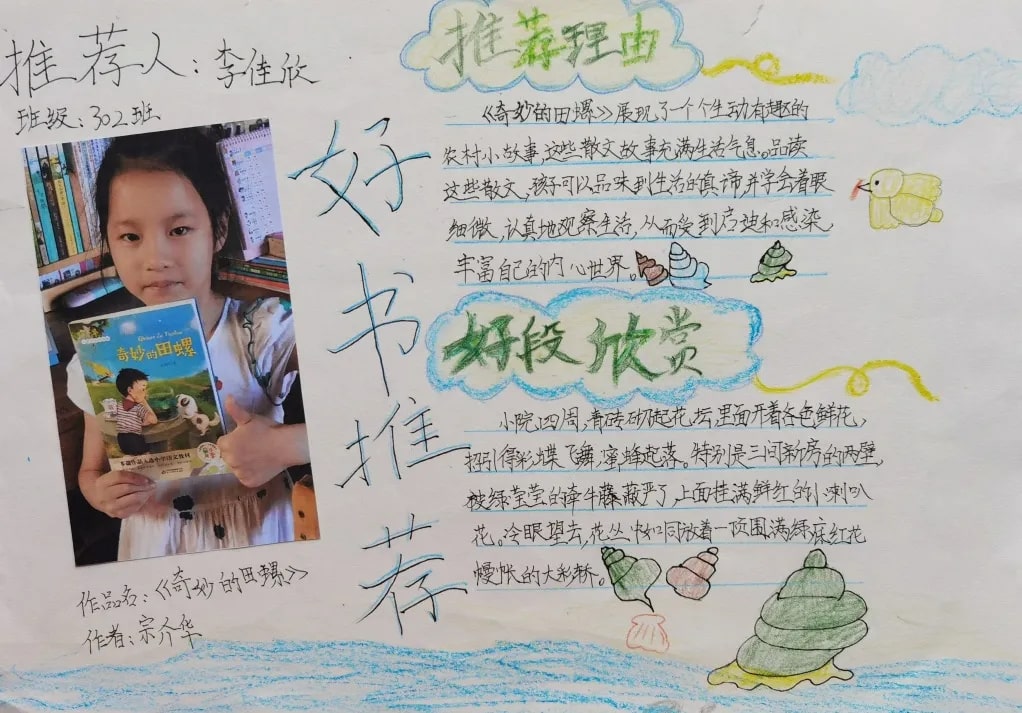 推荐人：李佳欣
班级：302班
奇妙的田螺
作品名：《奇妙的田螺》
作者：宗介华
好书推荐
推荐理由
《奇妙的田螺》展现了一个个生动有趣的
农村小故事，这些散文故事充满生活气息。品读
这些散文，孩子可以品味到生活的真谛并学会着眼
细微，认真地观察生活，从而受到启迪和感染，
丰富自己的内心世界。
好段欣赏
小院四周，青砖砌起花坛，里面开着各色鲜花，
招引得彩蝶飞舞，蜜蜂起落。特别是三间新房的两壁，
被绿莹莹的牵牛藤蔽严了，上面挂满鲜红的小喇叭
花。冷眼望去，花丛中如同放着一顶围满绿底红花
幔帐的大彩轿。